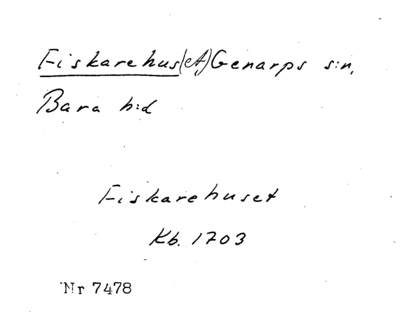 Fiskarehus(et) Genarps s:n,
Bara h:d
Fiskarehuset
Kb. 1703
Nr 7478